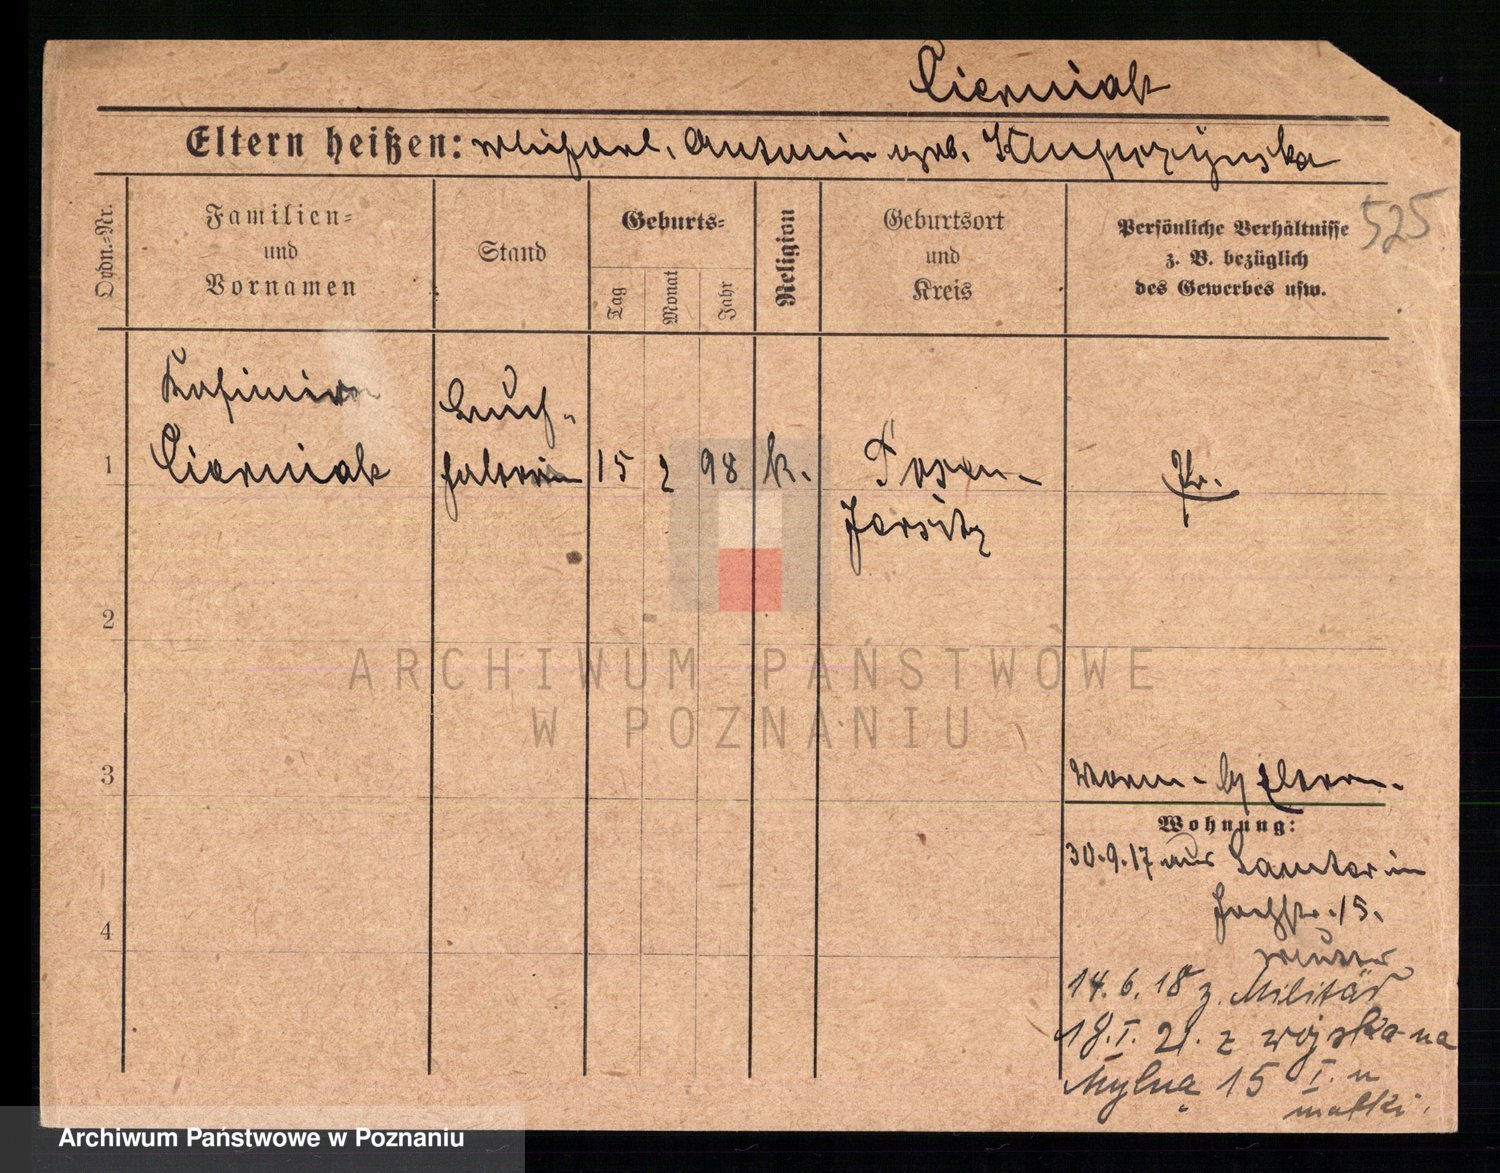 Cierniak
Eltern heißen: Michael, Antonie geb. Kluczynska
525
Ordn.-Nr.
Familien-
und
Vornamen
Stand
Geburts-
Tag
Monat
Jahr
Religion
Geburtsort
und
Kreis
Persönliche Verhältnisse
z. B. bezüglich
des Gewerbes usw.
1
Kasimira
Cierniak
Buch-
halterin
15
2
98
k.
Posen-
Jersitz
Pr.
2
3
4
Eltern.
Wohnung:
30.9.17 aus Samter in
15.
Mutter
14.6.18 z. Militär
18.I.21. z wojska na
Mylną 15 I. u
matki.
ARCHIWUM PAŃSTWOWE
W POZNANIU
Archiwum Państwowe w Poznaniu